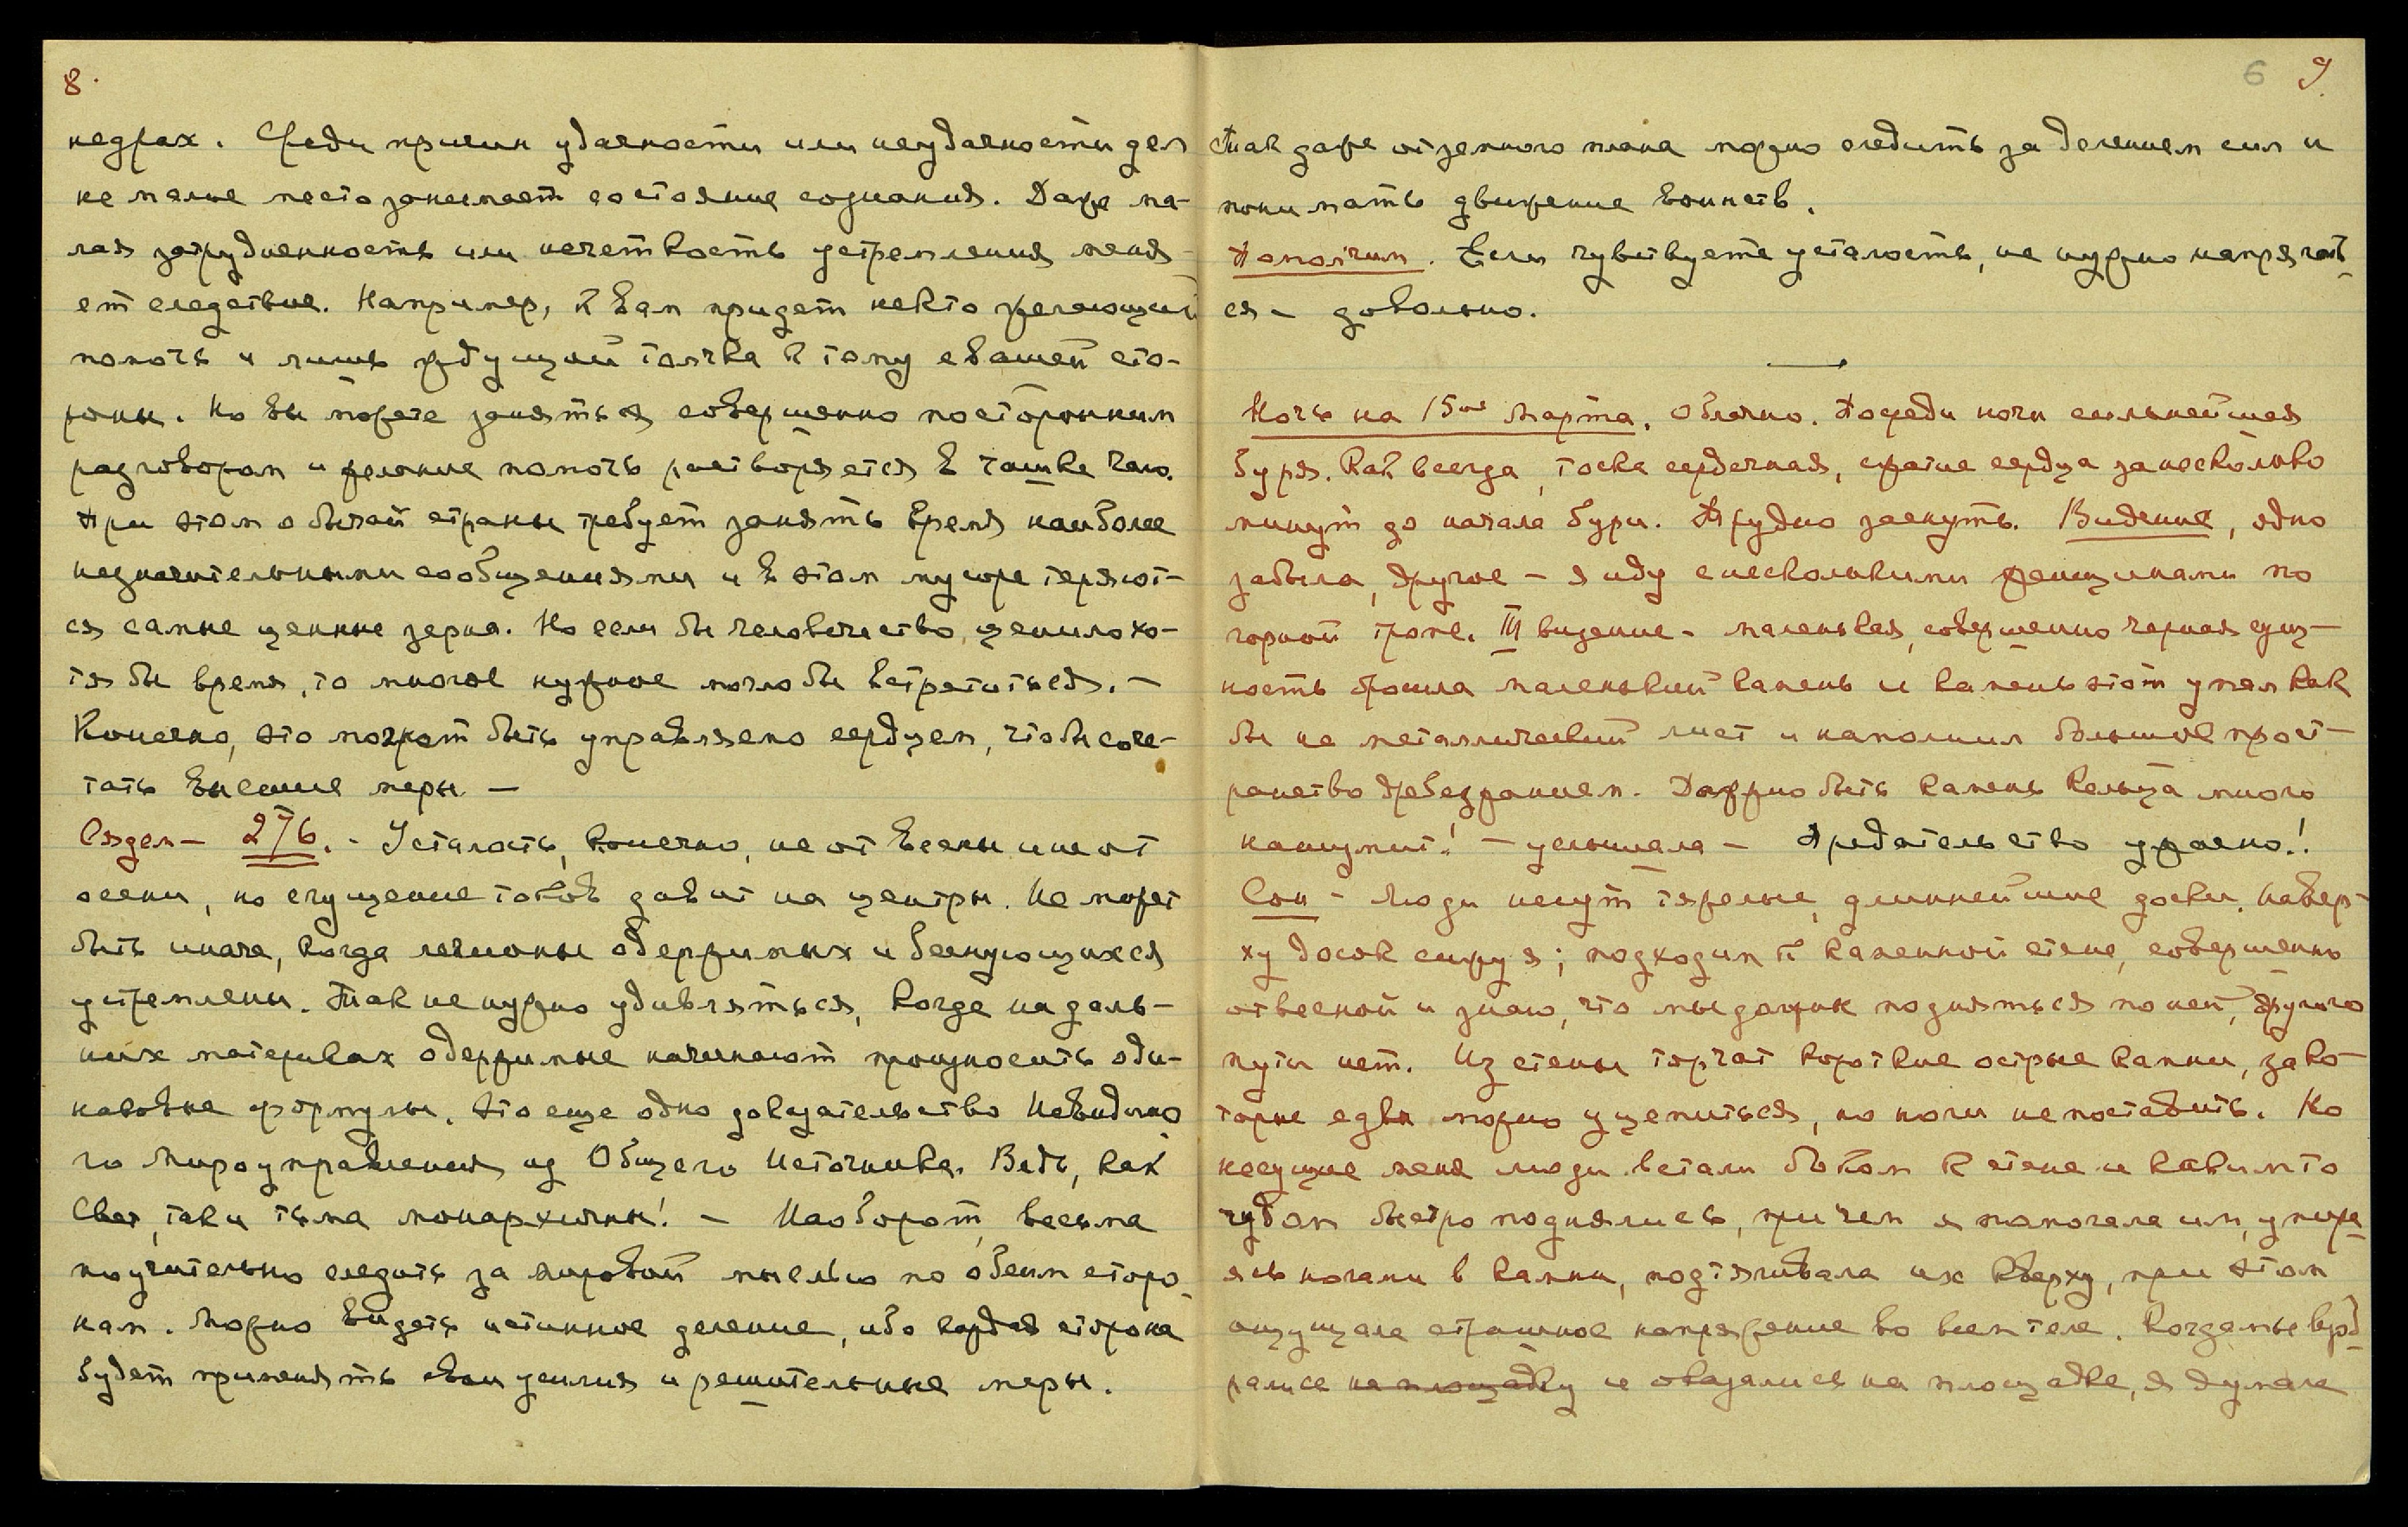 8.
недрах. Среди причин удачности или неудачности дел
не малое место занимает состояние сознания. Даже ма-
лая затрудненность или нечеткость устремления меня-
ет следствие. Например, к Вам придет некто желающий
помочь и лишь ждущий толчка к тому с вашей сто-
роны. Но вы можете заняться совершенно посторонним
разговором и желание помочь растворяется в чашке чаю.
При этом обычай страны требует занять время наиболее
незначительными сообщениями и в этом мусоре теряют-
ся самые ценные зерна. Но если бы человечество, ценило хо-
тя бы время, то многое нужное могло бы встретиться. –
Конечно, это может быть управляемо сердцем, чтобы соче-
тать высшие меры –
Сядем – 276. – Усталость, конечно, не от весны и не от
осени, но сгущение токов давит на центры. Не может
быть иначе, когда легионы одержимых и беснующихся
устремлены. Так не нужно удивляться, когда на даль-
них материках одержимые начинают произносить оди-
наковые формулы. Это еще одно доказательство Невидимо
го Мироуправления из Общего Источника. Ведь, как
Свет, так и тьма монархичны! – Наоборот, весьма
поучительно следить за мировой мыслью по обеим сторо-
нам. Можно видеть истинное деление, ибо каждая сторона
будет применять свои усилия и решительные меры.
6 9.
Так даже от земного плана можно следить за делением сил и
понимать движение воинств.
Помолчим. Если чувствуете усталость, не нужно напрягать-
ся – довольно.
Ночь на 15ое Марта. Облачно. Посреди ночи сильнейшая
буря. Как всегда, тоска сердечная, сжатие сердца за несколько
минут до начала бури. Трудно заснуть. Видение, одно
забыла, другое – я иду с несколькими женщинами по
горной тропе. III видение – маленькая, совершенно черная сущ-
ность бросила маленький камень и камень этот упал как
бы на металлический лист и наполнил большое прост-
ранство дребезжанием. Должно быть камень Кельца много
нашумит! – услышала – Предательство ужасно!
Сон – Люди несут тяжелые, длиннейшие доски. Навер-
ху досок сижу я; подходим к каменной стене, совершенно
отвесной и знаю, что мы должны подняться по ней, другого
пути нет. Из стены торчат короткие острые камни, за ко-
торые едва можно уцепиться, но ноги не поставить. Но
несущие меня люди встали боком к стене и каким то
чудом быстро поднялись, причем я помогала им, упира-
ясь ногами в камни, подтягивала их кверху, при этом
ощущала страшное напряжение во всем теле. Когда мы взоб-
рались на площадку и оказались на площадке, я думала